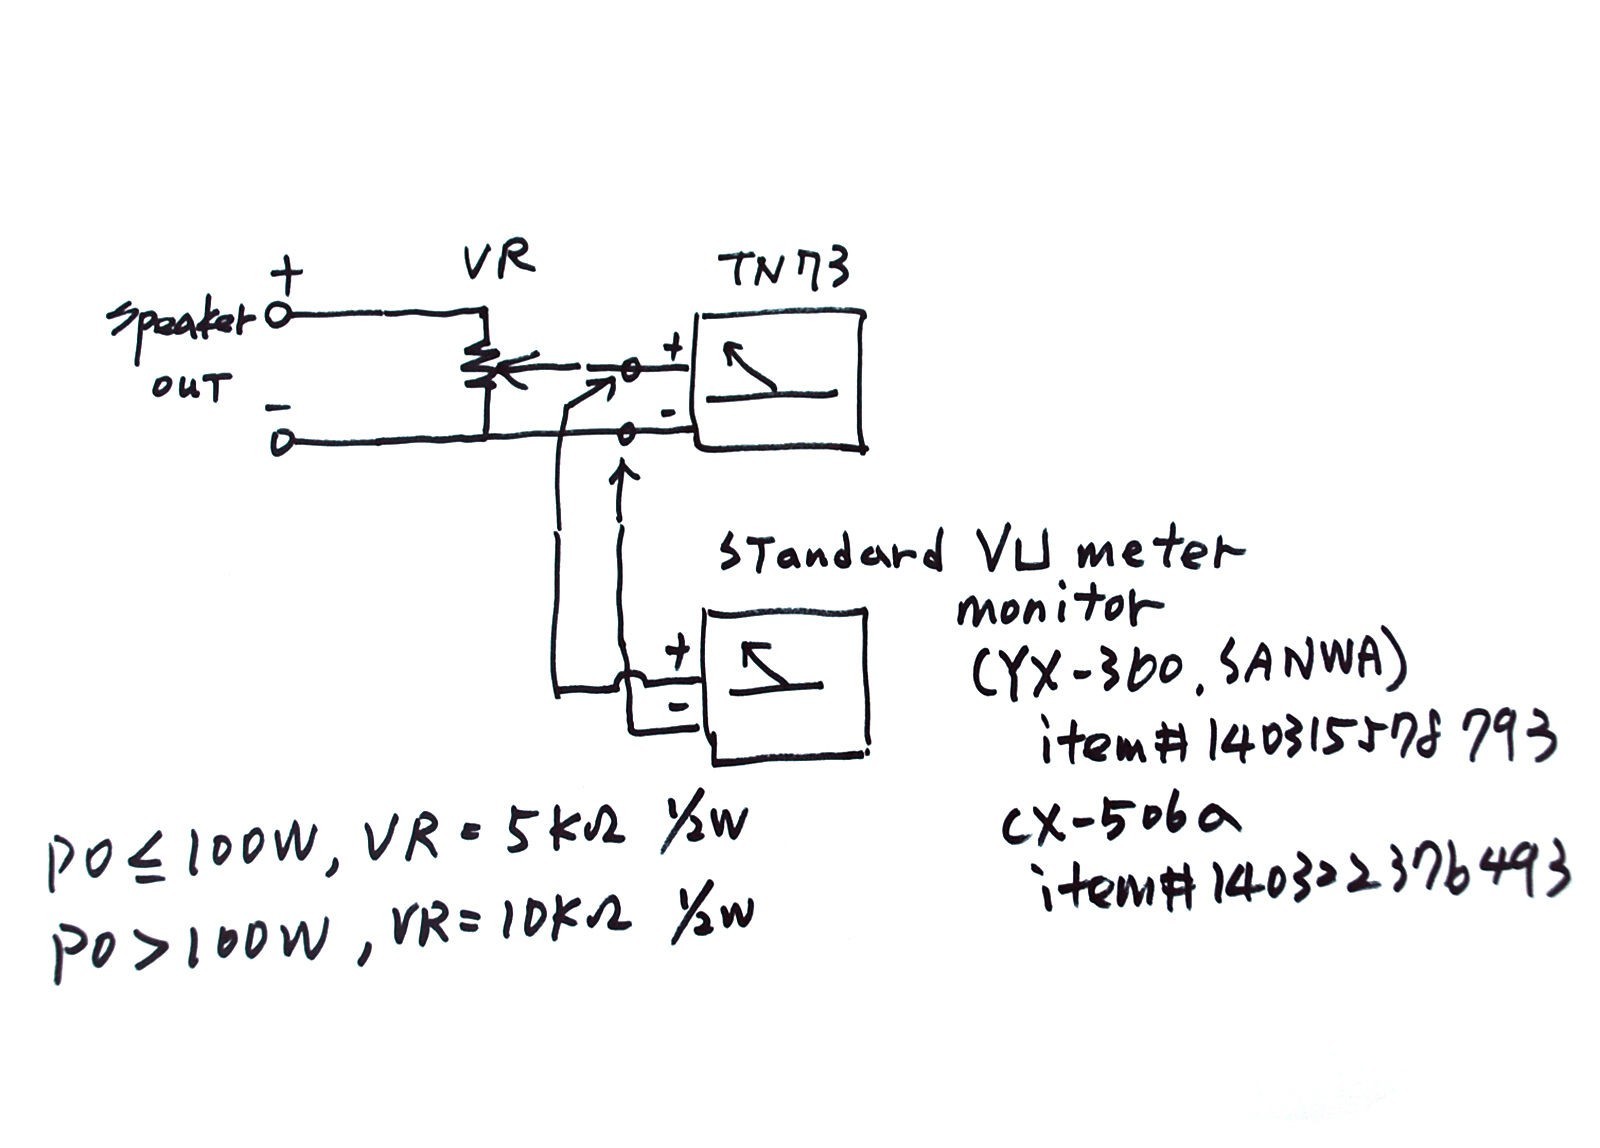 VR
TN73
+
speaker
out
-
+
-
Standard VU meter
monitor
(YX-360, SANWA)
item# 140315578793
CX-506a
item# 140322376493
+
-
PO ≤ 100W, VR = 5KΩ 1/2W
PO > 100W, VR = 10KΩ 1/2W